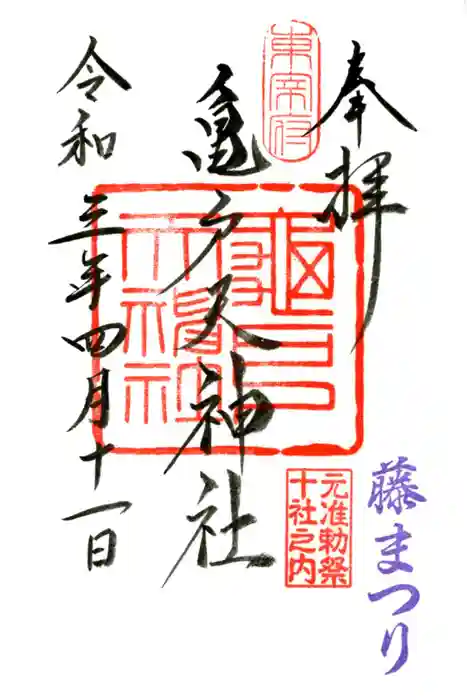 奉拝
東宰府
亀戸天神社
元准勅祭
十社之内
令和三年四月十一日
藤まつり